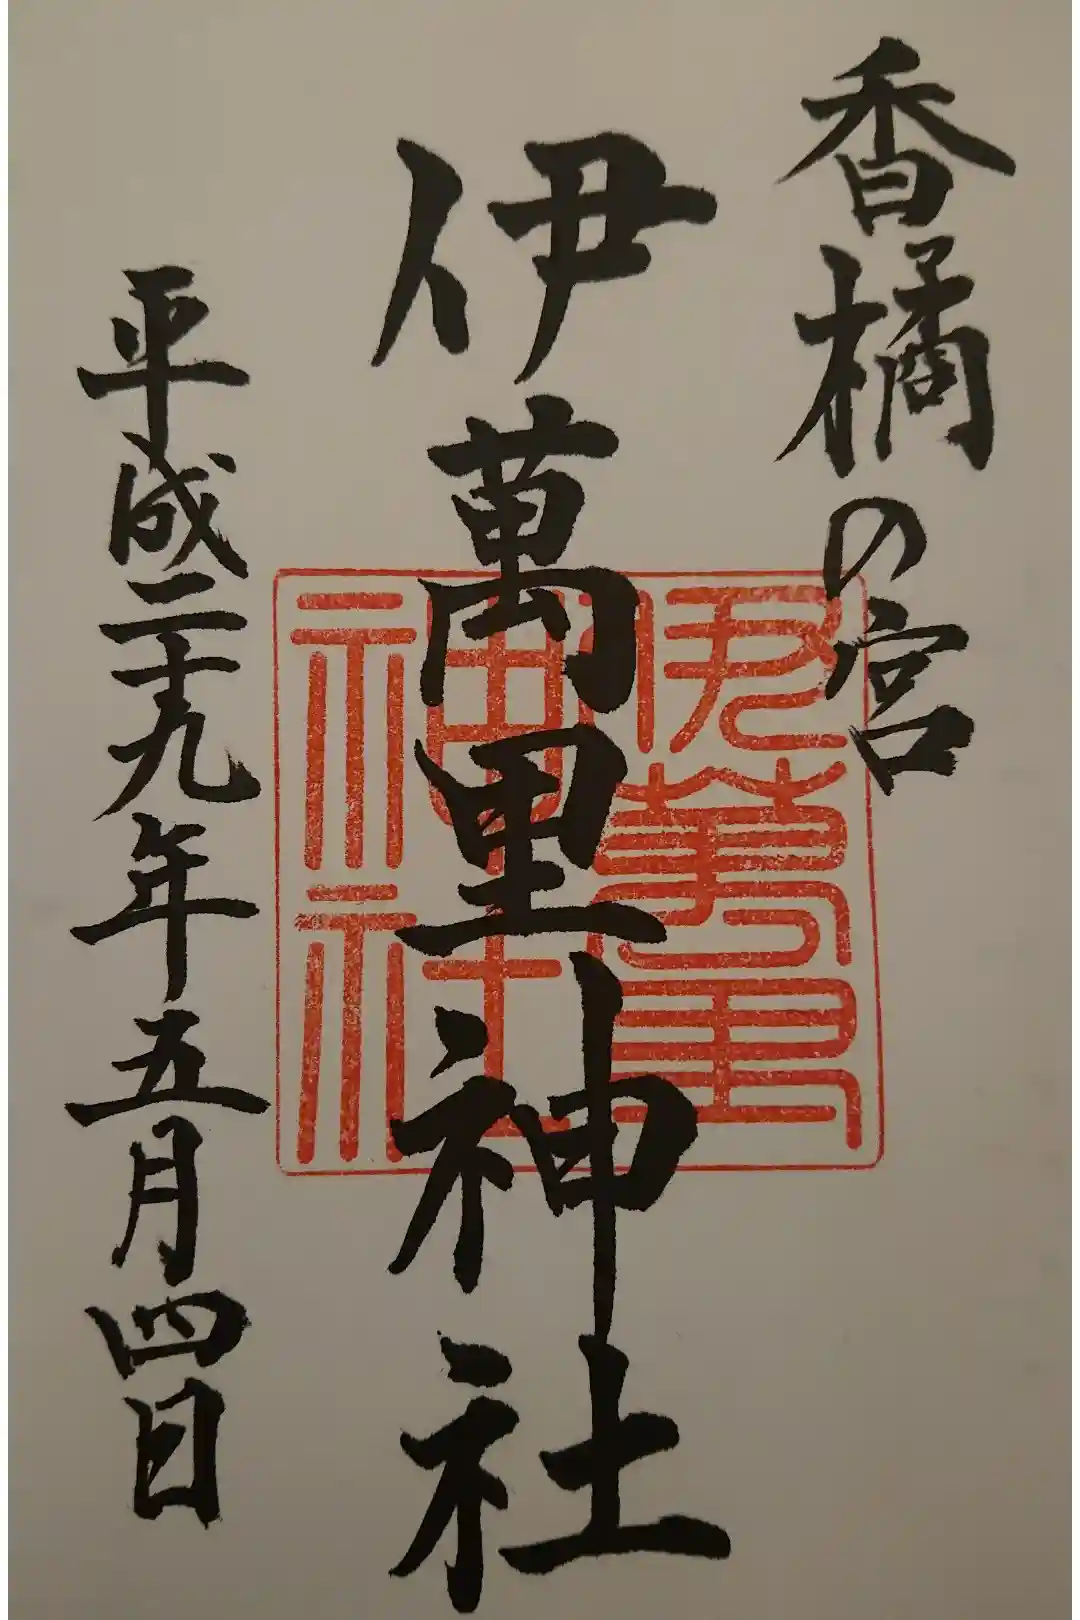 香橘の宮
伊萬里神社
平成二十九年五月四日
伊萬里
神社